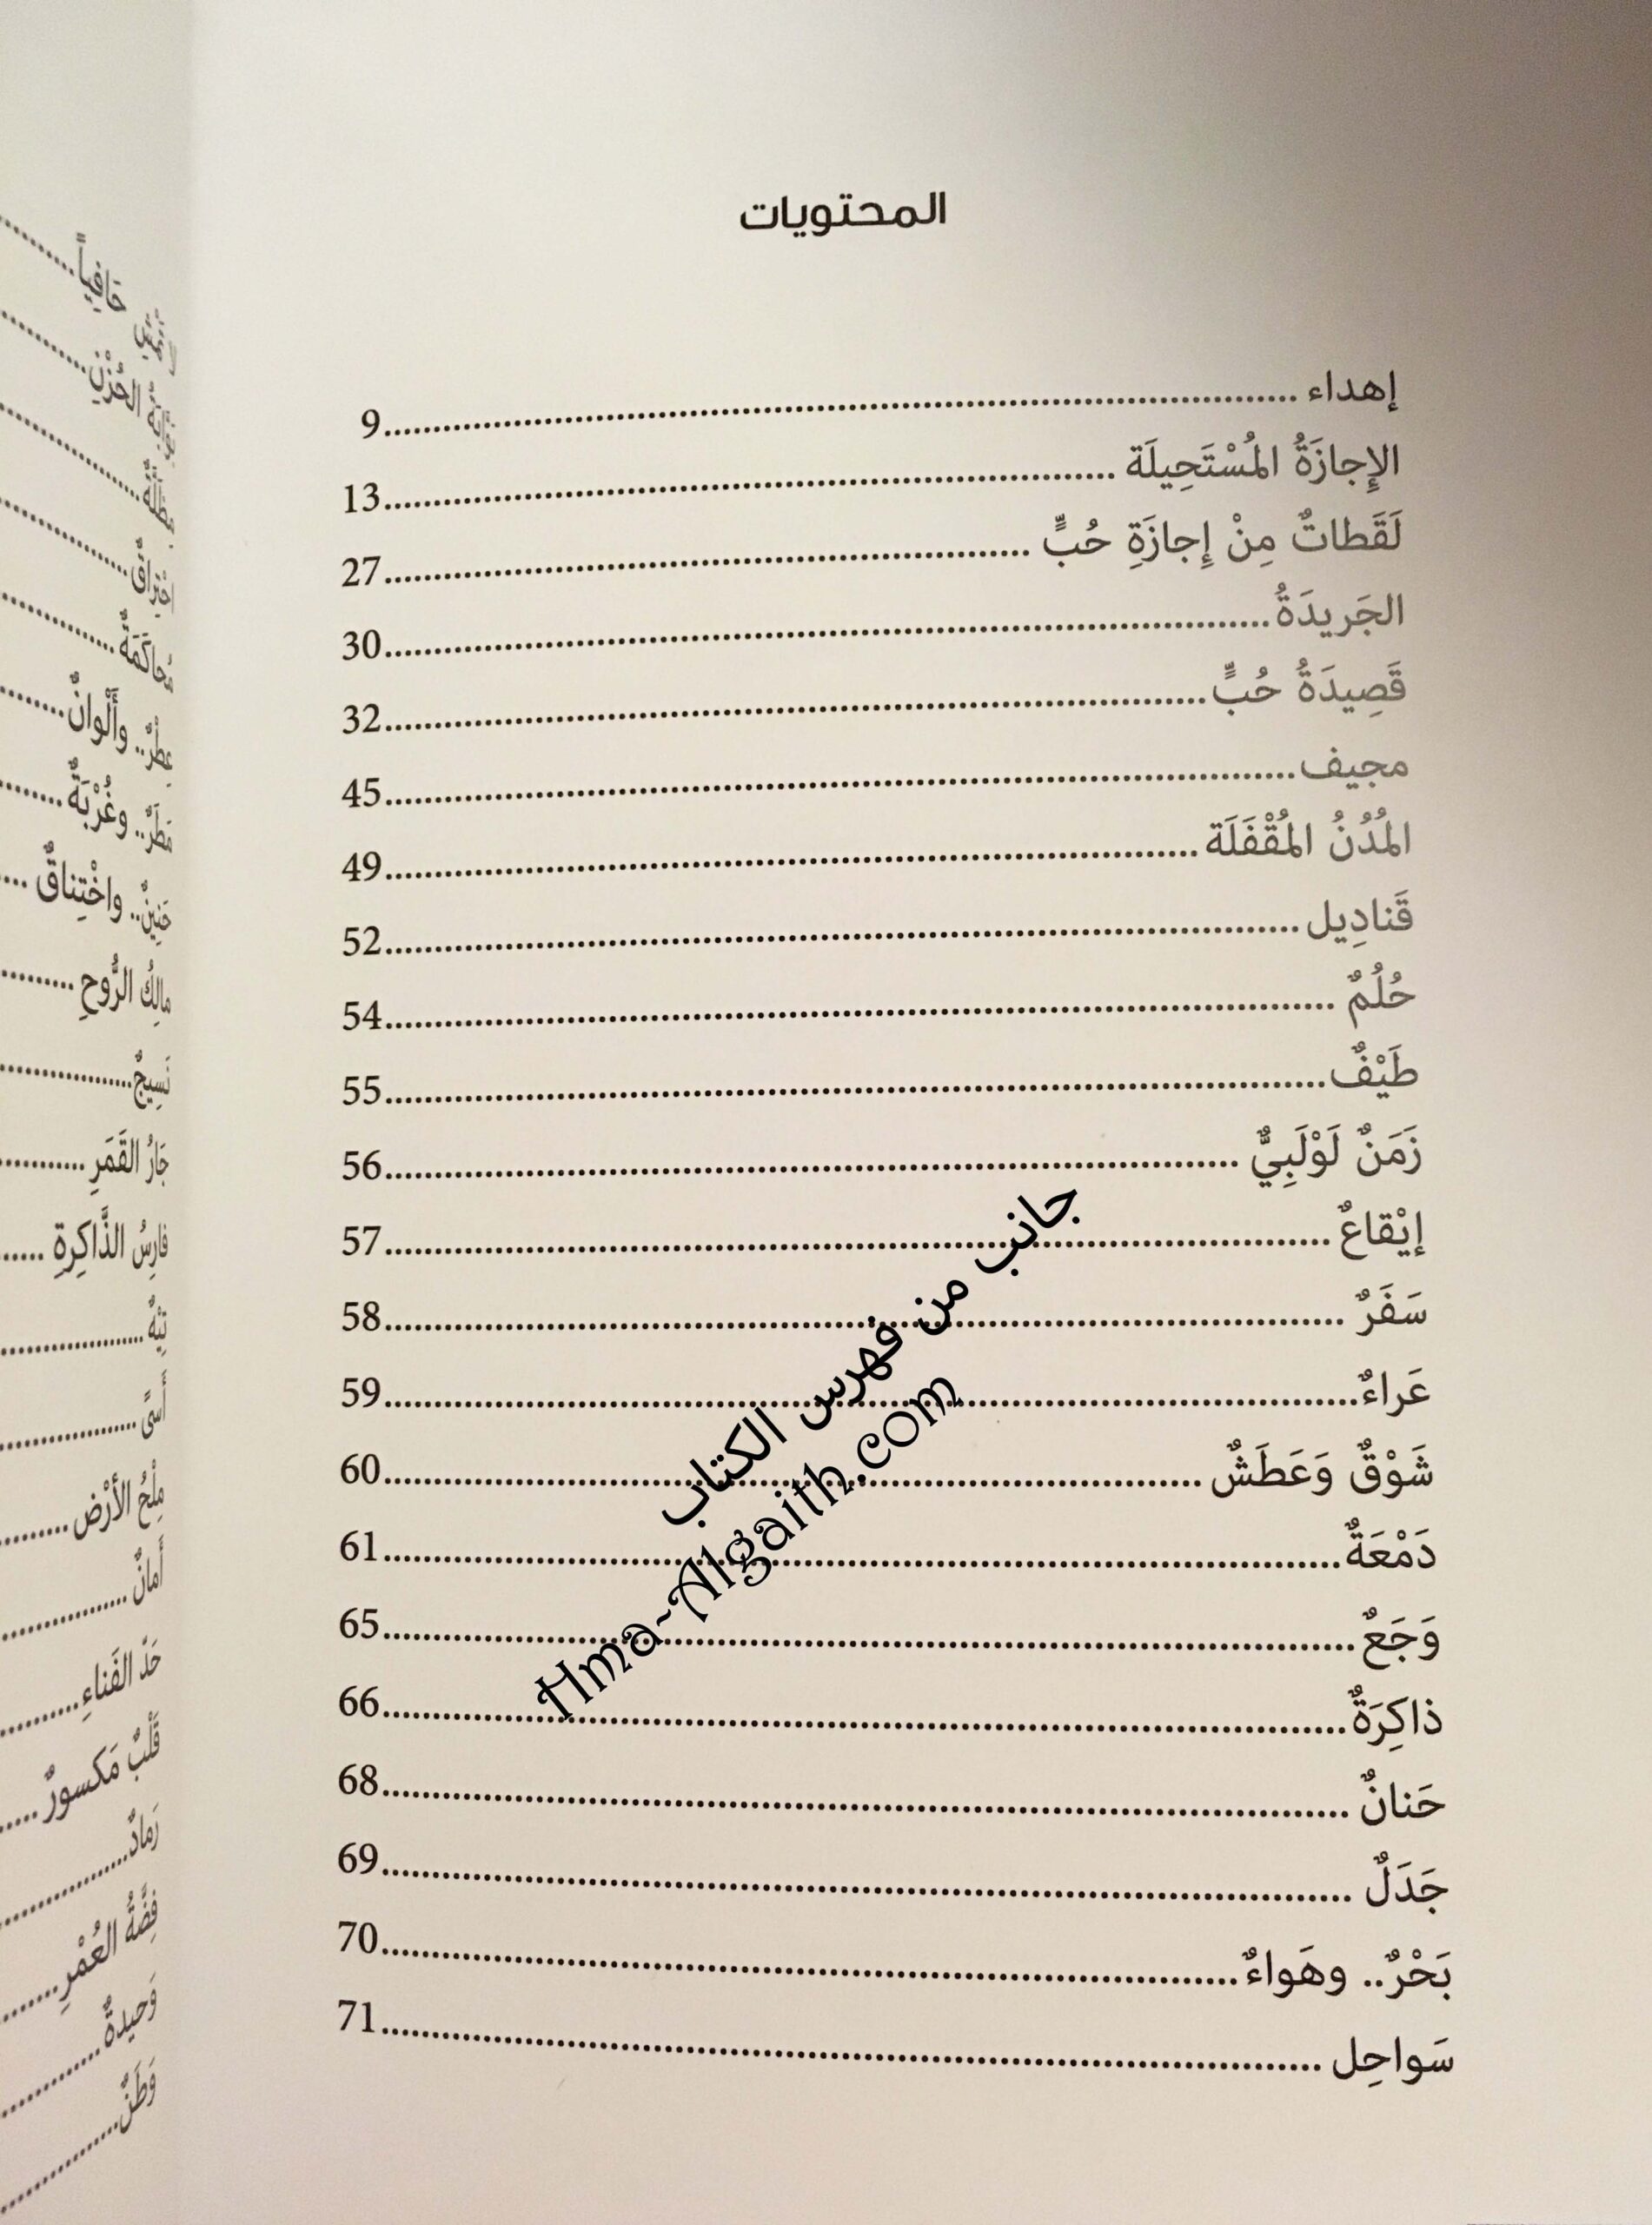 المحتويات
إهداء ........ 9
الإِجازَةُ المُسْتَحِيلَة ........ 13
لَقَطاتٌ مِنْ إِجازَةِ حُبٍّ ........ 27
الجَريدَةُ ........ 30
قَصِيدَةُ حُبٍّ ........ 32
مجيف ........ 45
المُدُنُ المُقْفَلَة ........ 49
قَنادِيل ........ 52
حُلُمٌ ........ 54
طَيْفٌ ........ 55
زَمَنٌ لَوْلَبِيٌّ ........ 56
إيْقاعٌ ........ 57
سَفَرٌ ........ 58
عَراءٌ ........ 59
شَوْقٌ وَعَطَشٌ ........ 60
دَمْعَةٌ ........ 61
وَجَعٌ ........ 65
ذاكِرَةٌ ........ 66
حَنانٌ ........ 68
جَدَلٌ ........ 69
بَحْرٌ.. وهَواءٌ ........ 70
سَواحِل ........ 71
جانب من فهرس الكتاب
Hma-Algaith.com
حَافِياً
الحُزْنِ
مِظَلَّةٌ
اخْتِراقٌ
مُحاكَمَةٌ
عِطْرٌ.. وأَلْوانٌ
مَطَرٌ.. وغُرْبَةٌ
حَنِينٌ.. واخْتِناقٌ
مالِكُ الرُّوحِ
نَسِيجٌ
جَارُ القَمَرِ
فارِسُ الذَّاكِرةِ
تِيْهٌ
أَسىً
مِلْحُ الأَرْض
أَمانٌ
حَدّ الفَناءِ
قَلْبٌ مَكسورٌ
رَمادٌ
فِضَّةُ العُمْرِ
وَحيدةٌ
وَطَنٌ